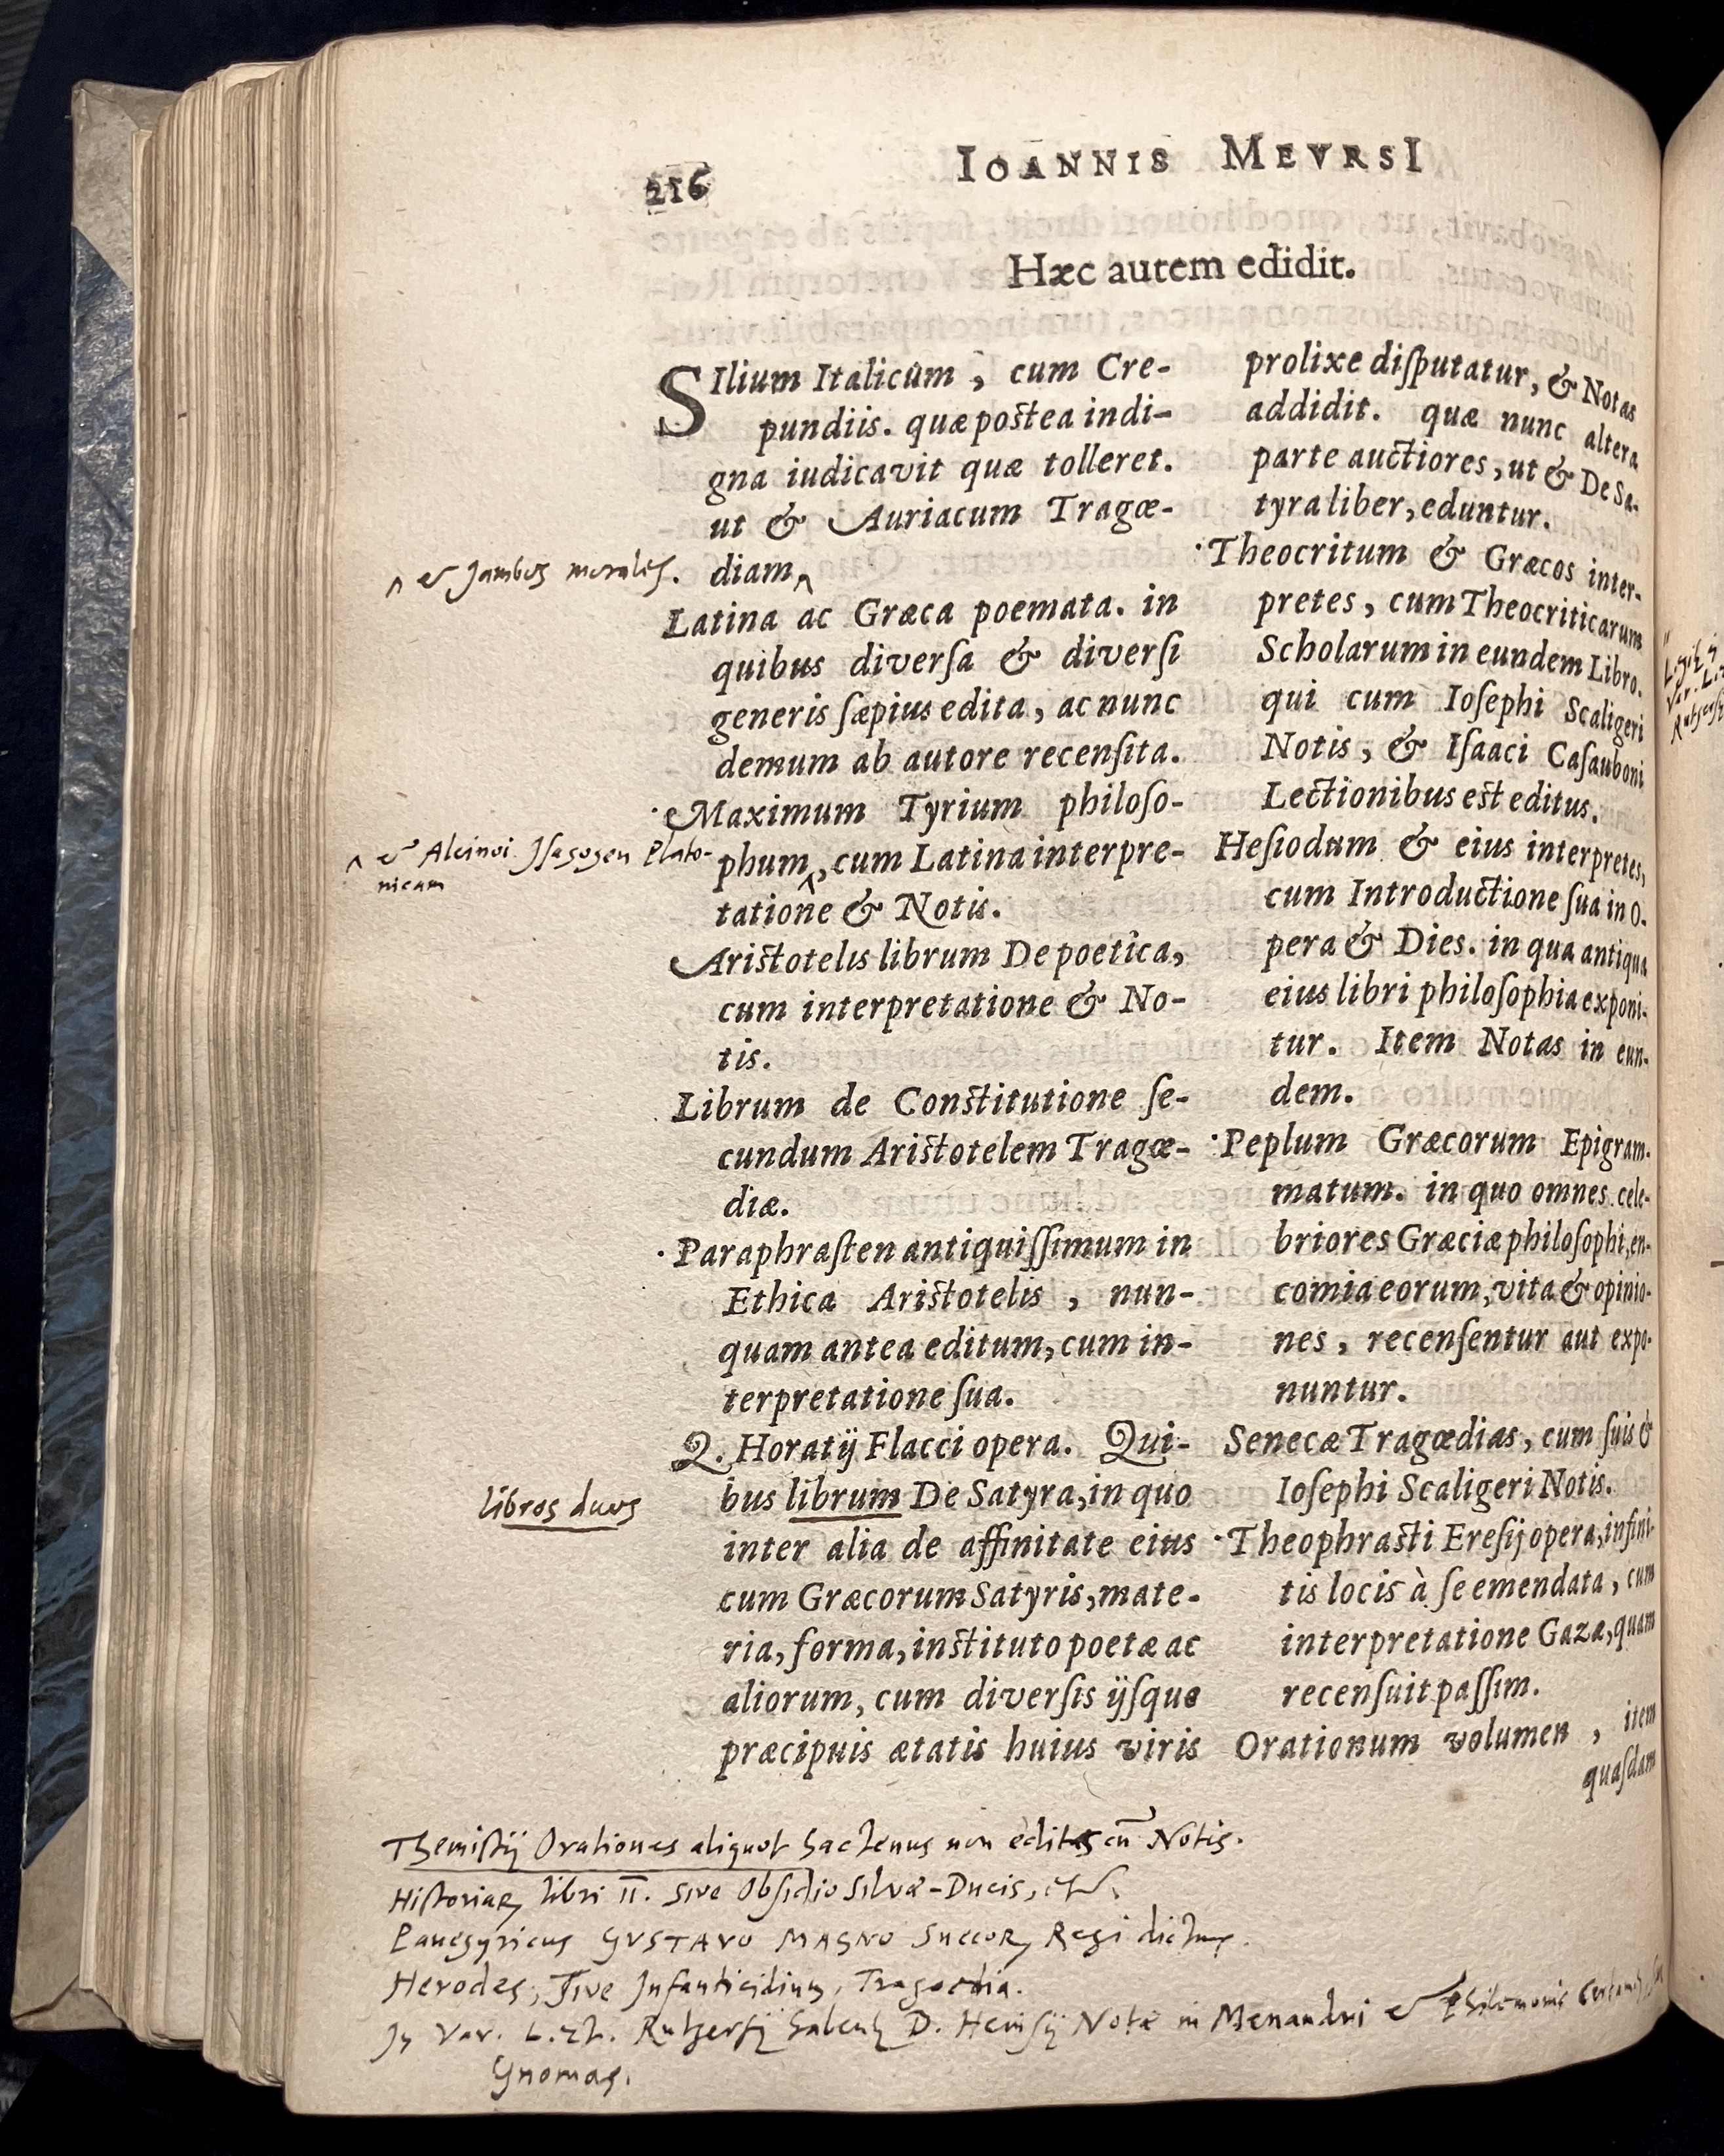 216
IOANNIS MEVRSI
Hæc autem edidit.
SIlium Italicum, cum Cre-
pundiis. quæ postea indi-
gna iudicavit quæ tolleret.
ut & Auriacum Tragœ-
diam,^
^ & Jambos morales.
Latina ac Græca poemata. in
quibus diversa & diversi
generis sæpius edita, ac nunc
demum ab autore recensita.
·Maximum Tyrium philoso-
phum^, cum Latina interpre-
^ & Alcinoi Isagogen Plato-
nicam
tatione & Notis.
Aristotelis librum De poetica,
cum interpretatione & No-
tis.
Librum de Constitutione se-
cundum Aristotelem Tragœ-
diæ.
·Paraphrasten antiquissimum in
Ethica Aristotelis, nun-
quam antea editum, cum in-
terpretatione sua.
Q. Horatij Flacci opera. Qui-
bus librum De Satyra, in quo
libros duos
inter alia de affinitate eius
cum Græcorum Satyris, mate-
ria, forma, instituto poetæ ac
aliorum, cum diversis ijsque
præcipuis ætatis huius viris
prolixe disputatur, & Notas
addidit. quæ nunc altera
parte auctiores, ut & De Sa-
tyra liber, eduntur.
·Theocritum & Græcos inter-
pretes, cum Theocriticarum
Scholarum in eundem Libro.
qui cum Iosephi Scaligeri
Notis, & Isaaci Casauboni
Lectionibus est editus.
Hesiodum & eius interpretes,
cum Introductione sua in O-
pera & Dies. in qua antiqua
eius libri philosophia exponi-
tur. Item Notas in eun-
dem.
·Peplum Græcorum Epigram-
matum. in quo omnes cele-
briores Græciæ philosophi, en-
comia eorum, vita & opinio-
nes, recensentur aut expo-
nuntur.
Senecæ Tragœdias, cum suis &
Iosephi Scaligeri Notis.
·Theophrasti Eresij opera, infini-
tis locis à se emendata, cum
interpretatione Gazæ, quam
recensuit passim.
Orationum volumen, item
quasdam
Themistij Orationes aliquot hactenus non editas cū Notis.
Historiaꝝ libri II. sive Obsidio Silvæ-Ducis, etc.
Panegyricus GVSTAVO MAGNO Suecoꝝ Regi dictus.
Herodes, sive Infanticidium, Tragoedia.
In Var. Lect. Rutgersij habentur D. Heinsij Notæ in Menandri & Philemonis
Gnomas.